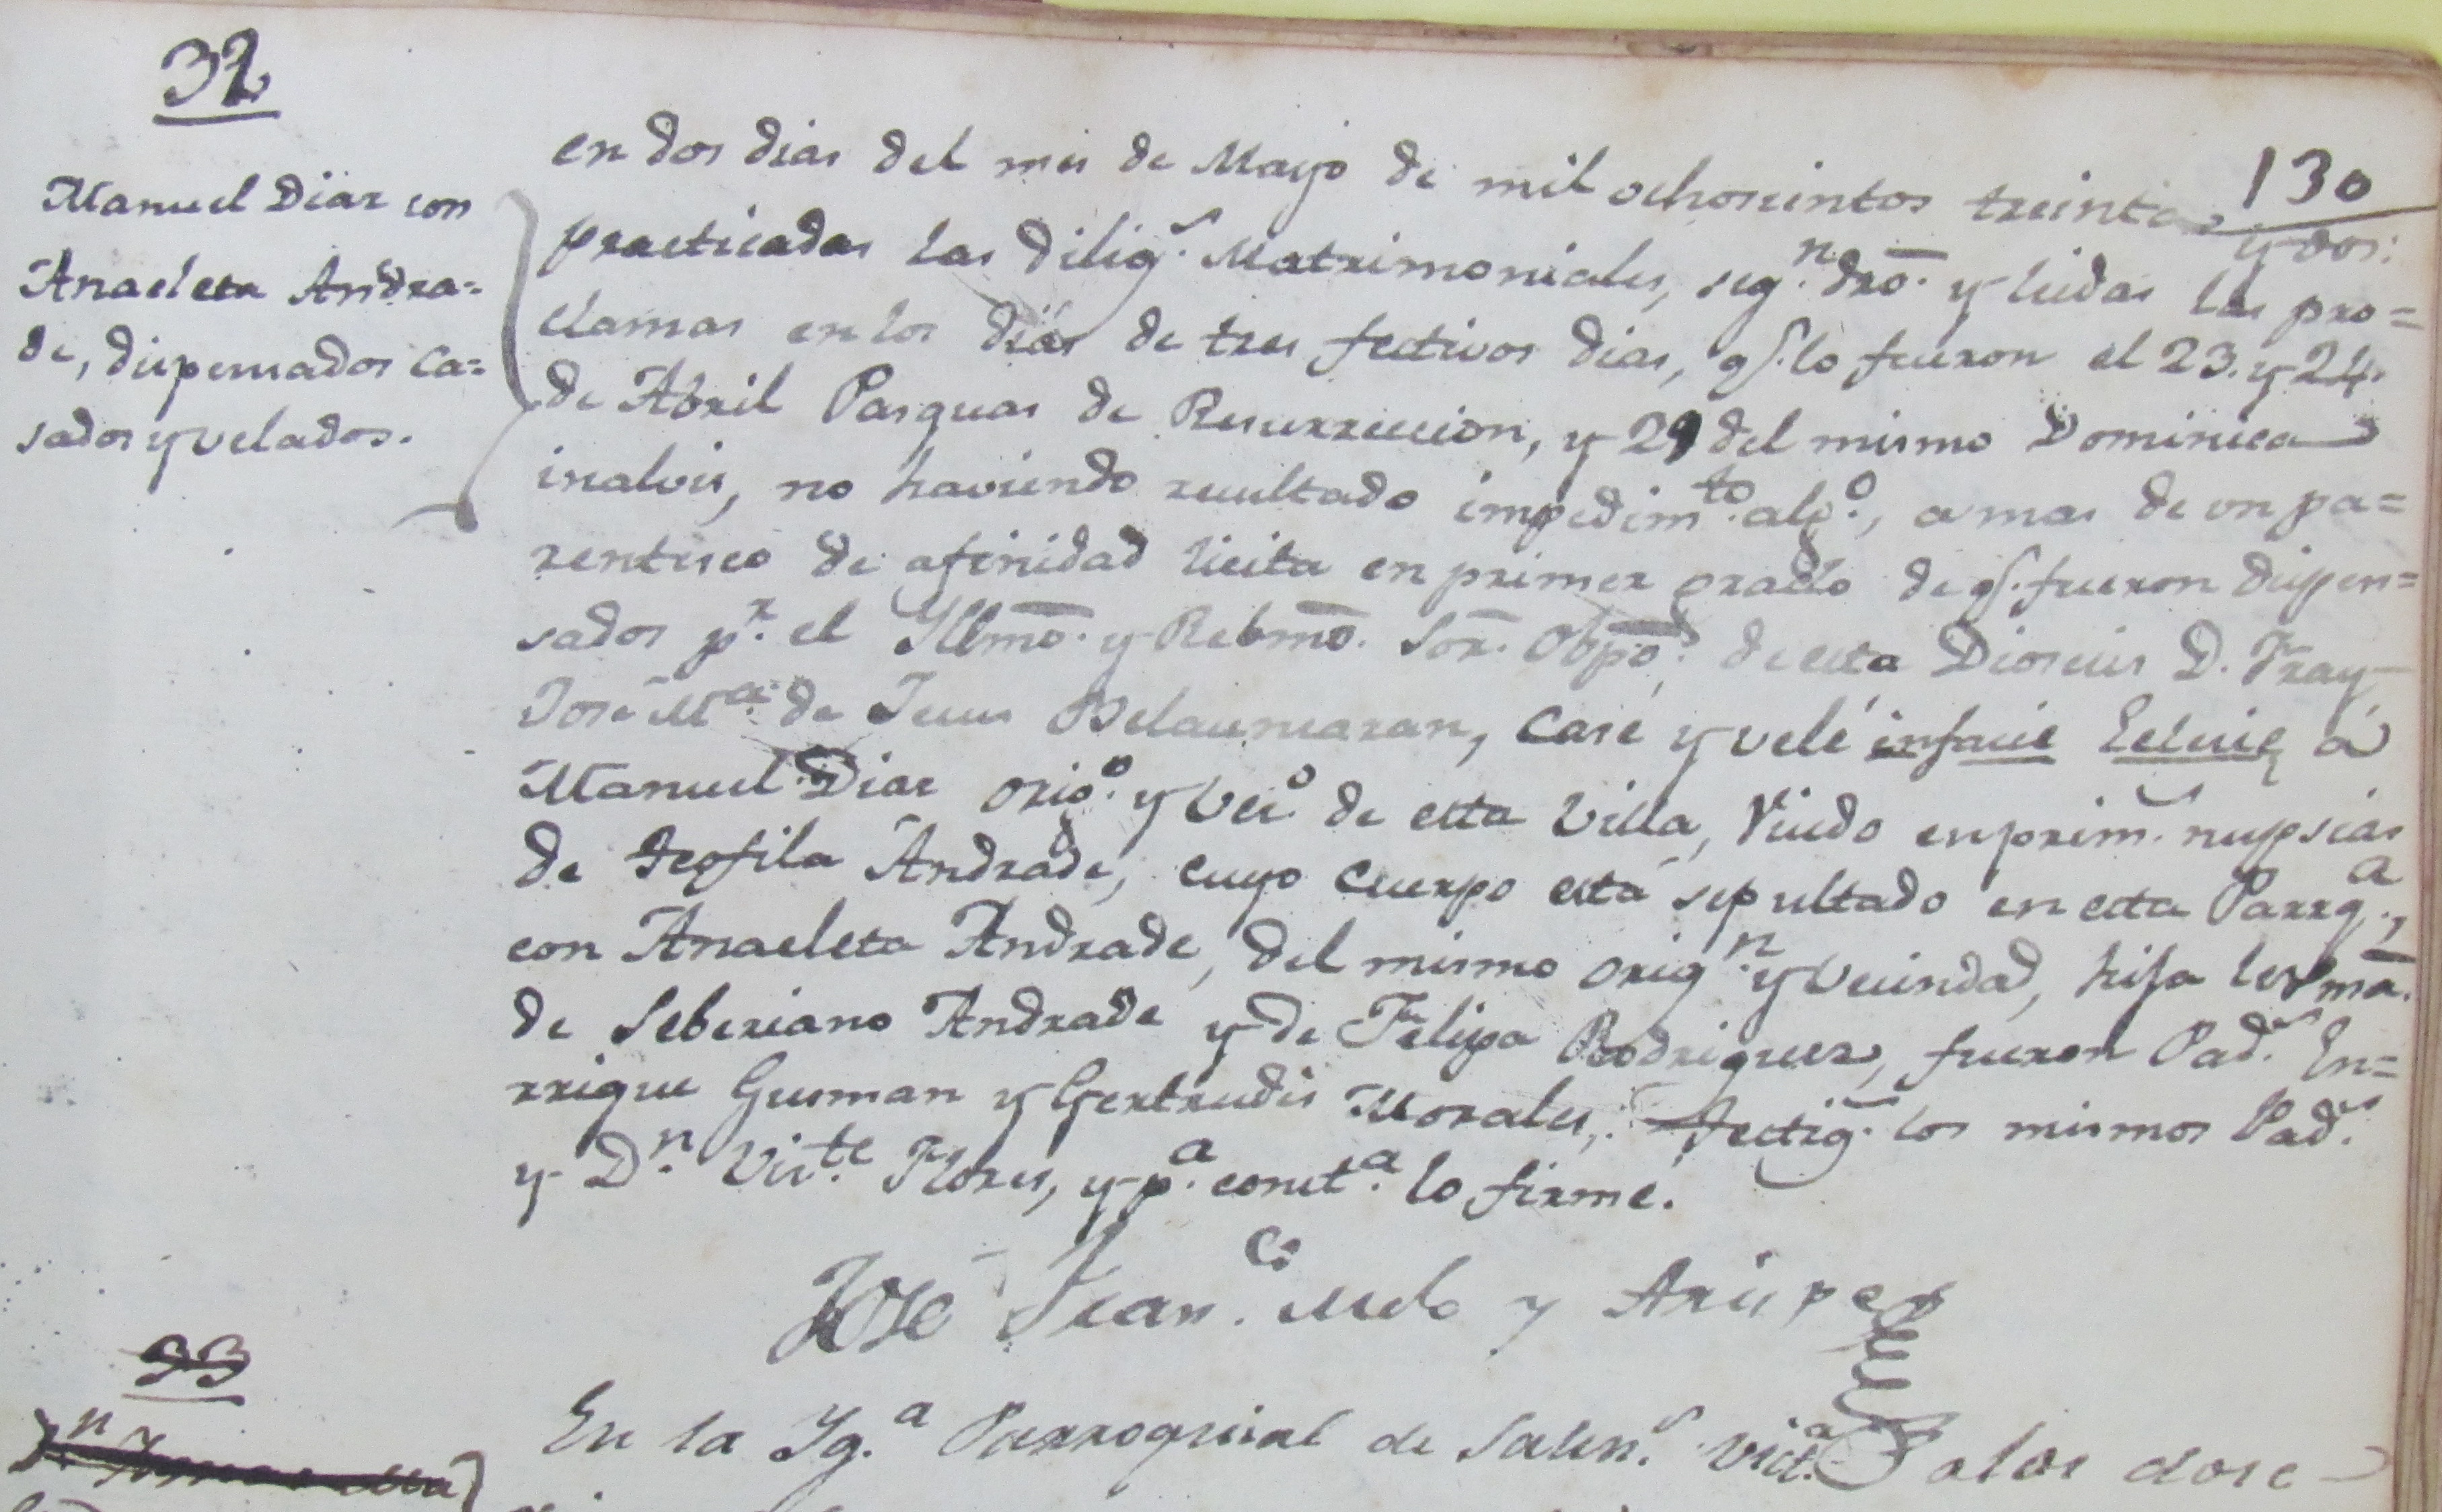 32
130
Manuel Diaz con
Anacleta Andra=
de, dispensados Ca=
sados y velados.
en dos dias del mes de Mayo de mil ochosientos treinta y dos:
practicadas las Dilig.s Matrimoniales, seg.n dro. y leidas las pro=
clamas en los dias de tres festivos dias, q.e lo fueron el 23. y 24.
de Abril Pasquas de Resurreccion, y 29 del mismo Dominica
inalvis, no haviendo resultado impedim.to alg.o, a mas de un pa=
rentesco de afinidad licita en primer grado de q.e fueron dispen=
sados p.r el Yllmo. y Rebmo. Sor. Obpo. de esta Diosesis D. Fray
Jose M.a de Jesus Belaunzaran, Casé y velé infacie Eclesie á
Manuel Diaz orig.o y Vec.o de esta Villa, Viudo en prim.s nupsias
de Teofila Andrade, cuyo cuerpo está sepultado en esta Parrq.a,
con Anacleta Andrade, del mismo orig.n y Vecindad, hija lexma.
de Seberiano Andrade y de Felipa Rodriguez, fueron Pad.s En=
rrique Gusman y Gertrudis Morales, testig.s los mismos Pad.s
y D.n Vis.te Flores, y p.a const.a lo firmé.
José Fran.co Melo y
33
En la Yg.a Parroquial de Salin.s Vict.a a los dose